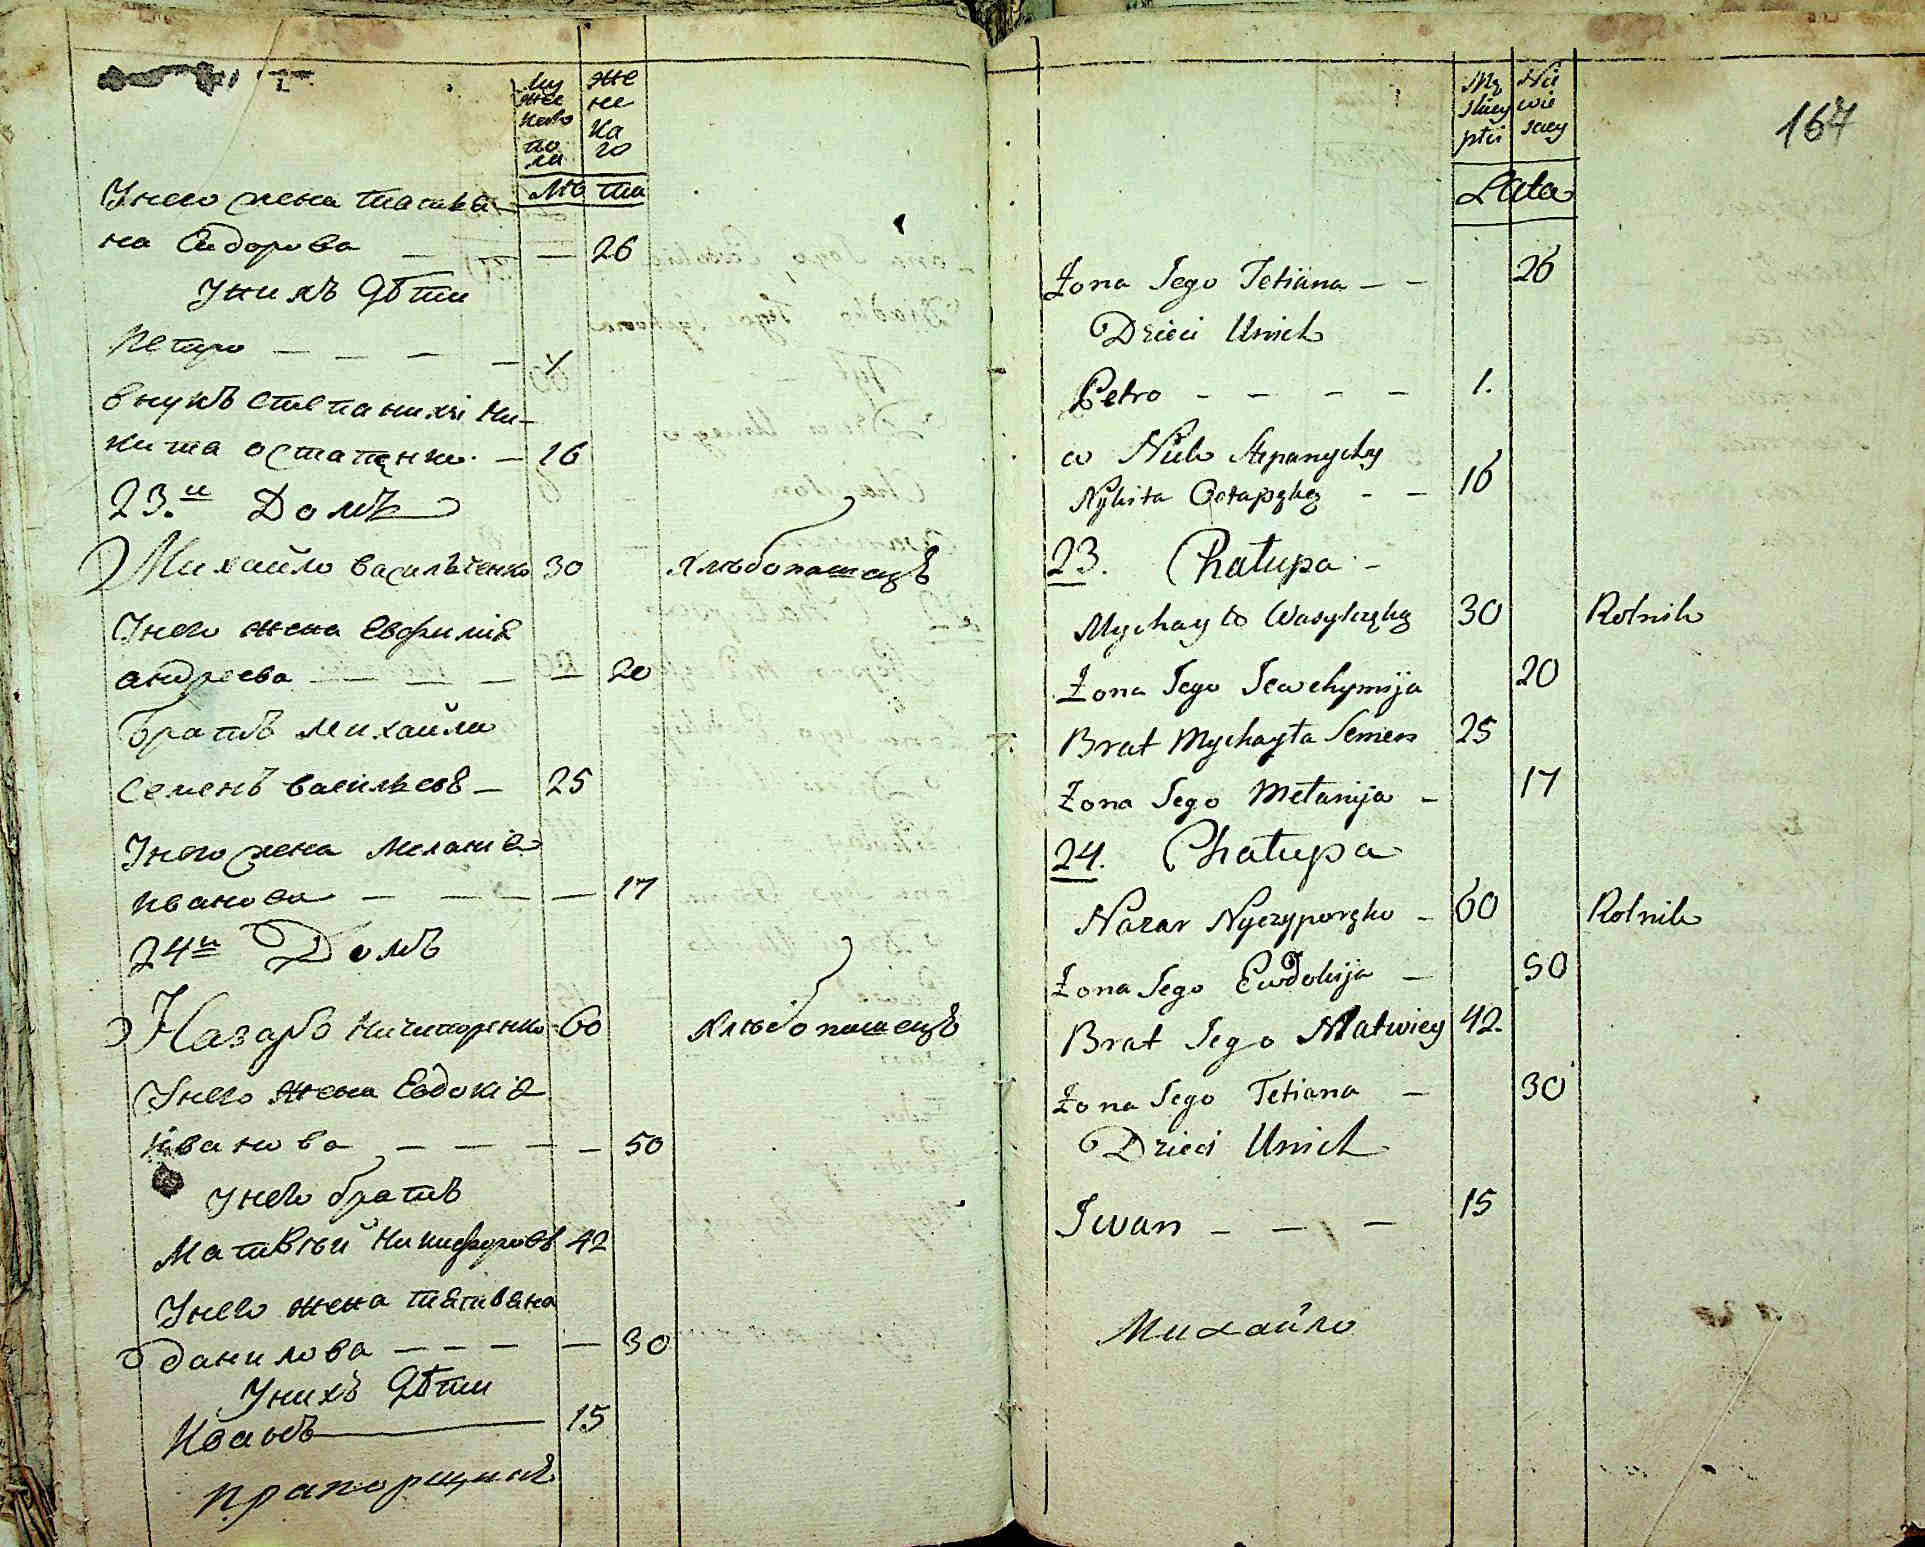 му
же
ско
по
ла
же
нс
ка
го
лѣ та
Унего жена татья-
на Сидорова — — 26
Унихъ Дѣти
Петро — — — — 1
внукъ степанихи Ни-
кита остапенко — 16
23.й Домъ
Михайло васильченко 30 Хлѣбопашецъ
Унего жена Евфимія
андреева — — — — 20
Братъ михайли
семенъ васильевъ — 25
Унего жена меланія
иванова — — — — 17
24й Домъ
Назаръ ничипоренко 60 Хлѣбопашецъ
Унего жена Евдокія
иванова — — — — 50
Унего братъ
матвѣй никифоровъ 42
Унего жена татьяна
данилова — — — — 30
Унихъ Дѣти
Иванъ — 15
прапорщикъ
164
Lata
Żona Jego Tetiana — — 26
Dzieci Unich
Petro — — — — 1.
Stepanychy
Nykita Ostapęko — — 16
23. Chałupa —
Mychayło Wasylczęko 30 Rolnik
Żona Jego Jewchymija 20
Brat Mychayła Semen 25
Żona Jego Mełanija — 17
24. Chałupa
Nazar Nyczyporęko — 60 Rolnik
Żona Jego Ewdokija — 50
Brat Jego Matwiey 42.
Żona Jego Tetiana — 30
Dzieci Unich
Iwan — — — 15
Михайло